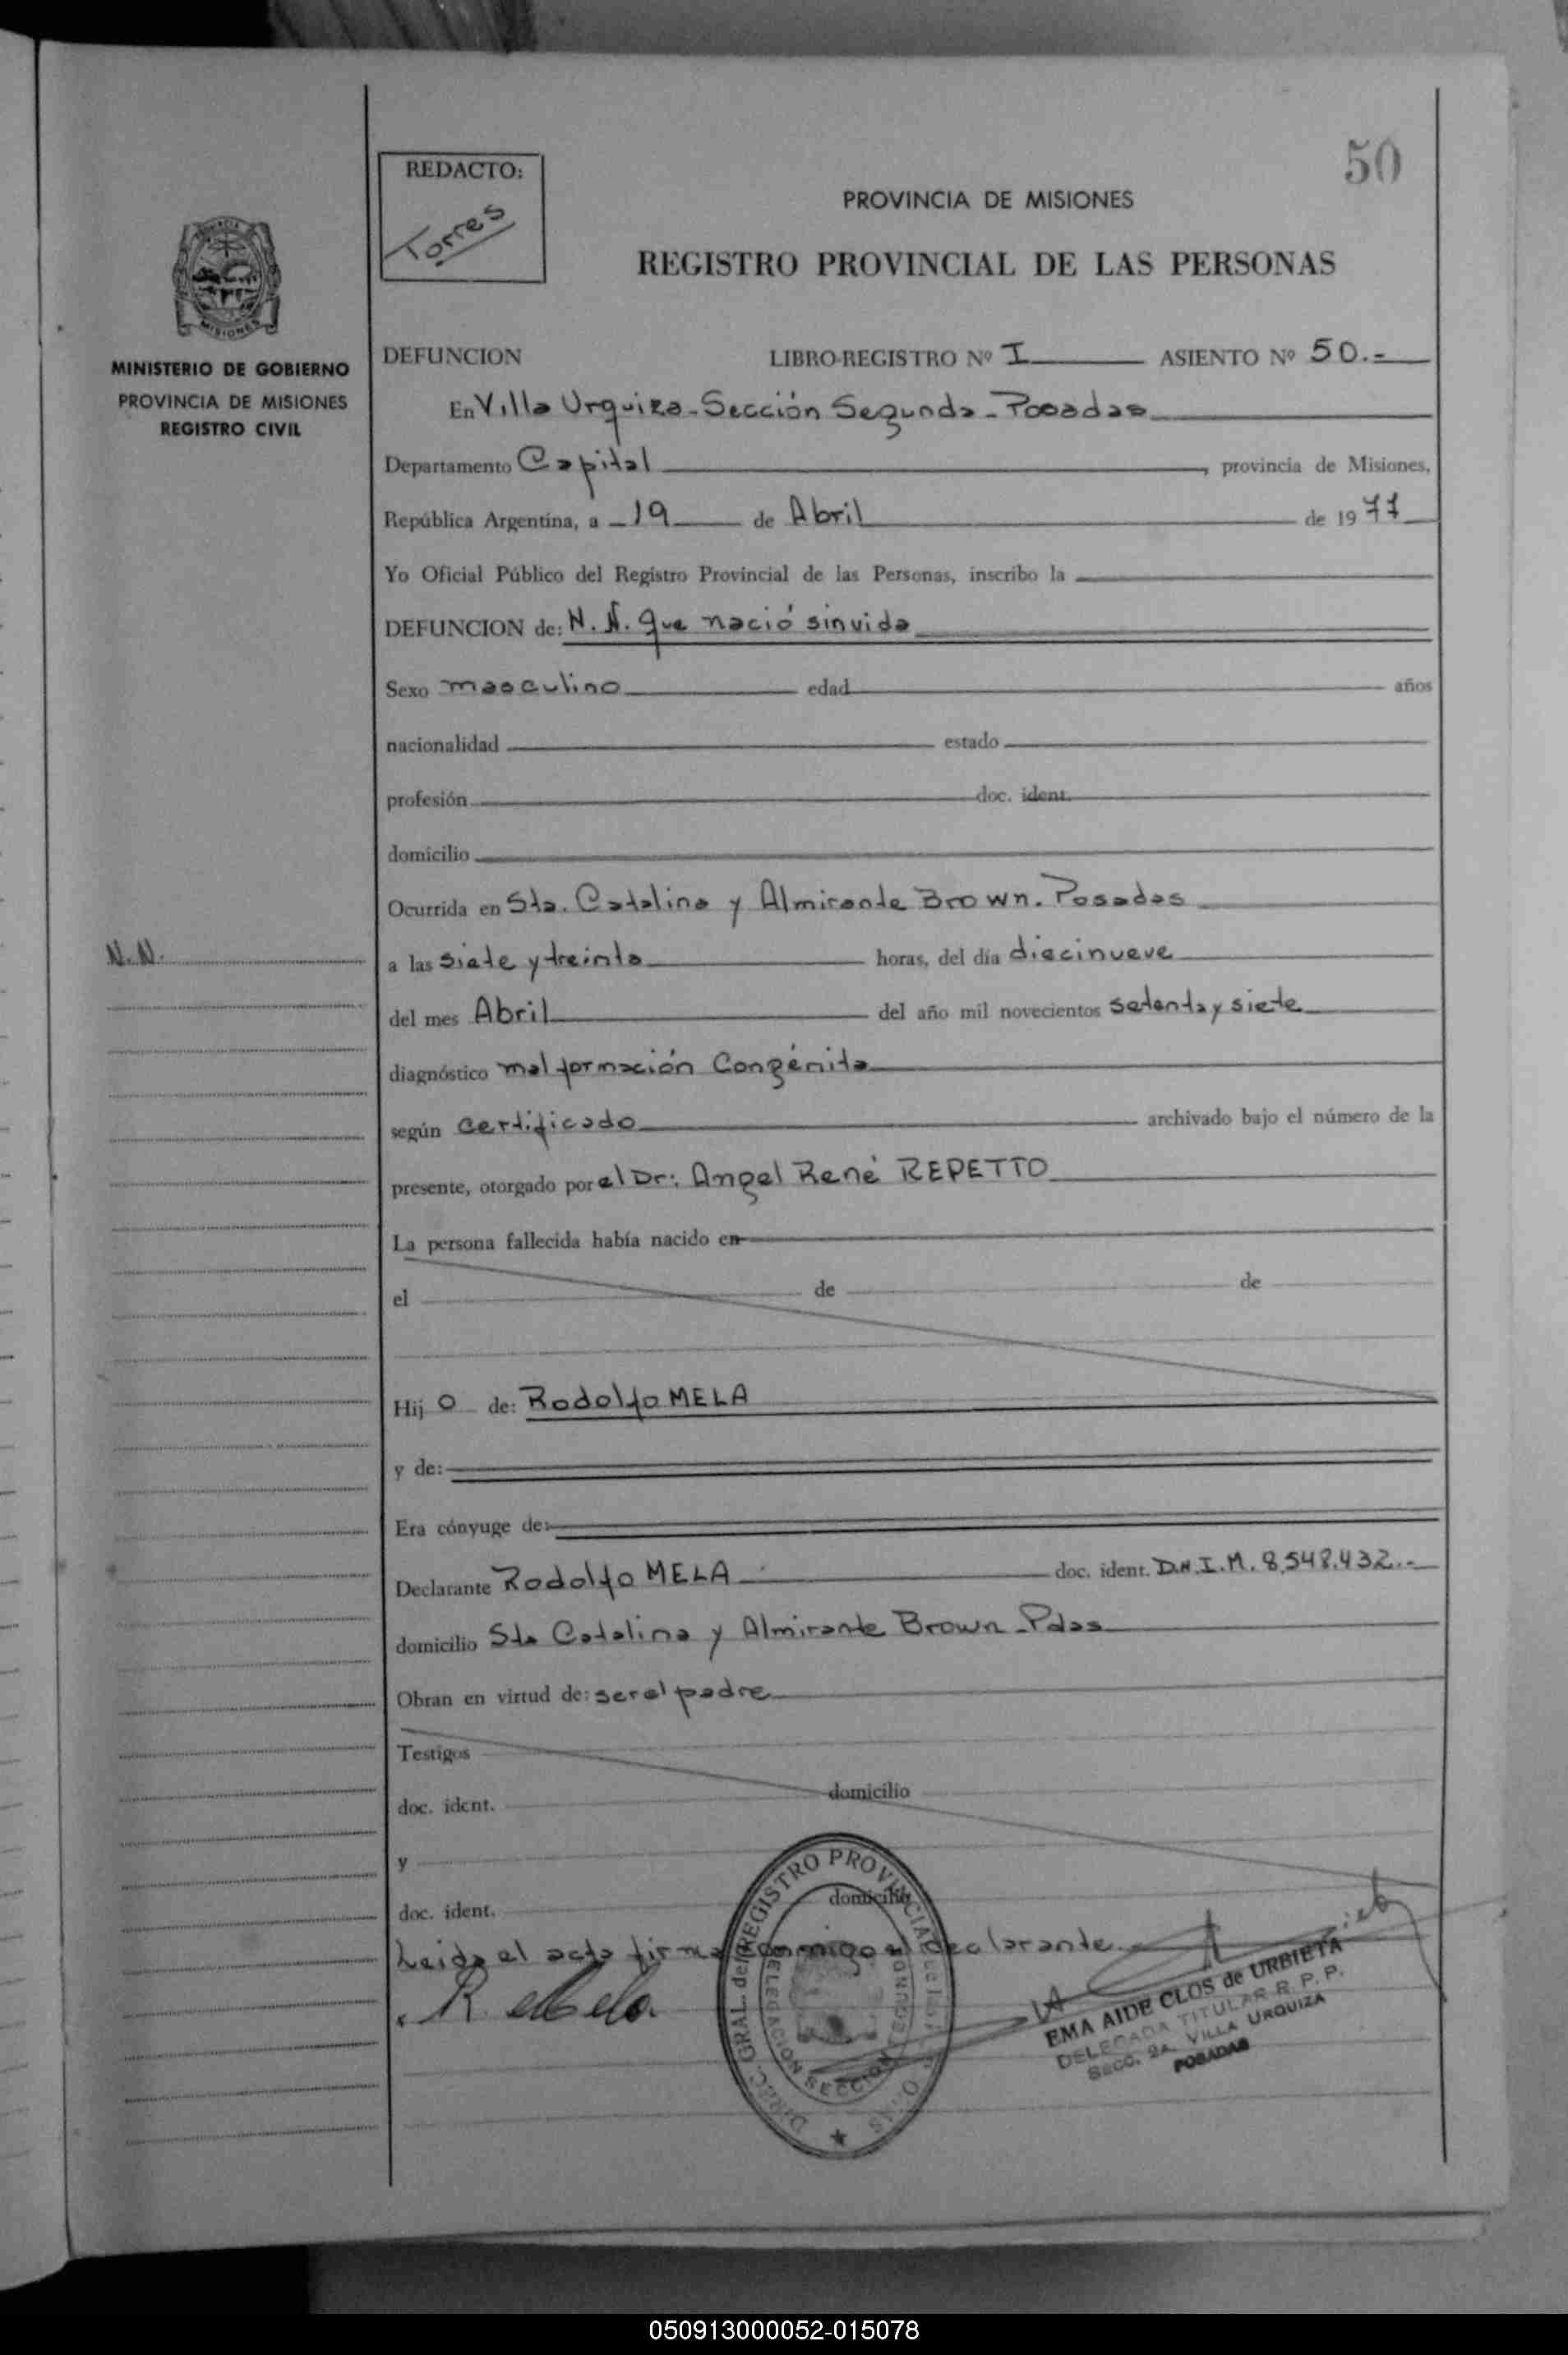 50
REDACTO:
Torres
PROVINCIA DE MISIONES
REGISTRO PROVINCIAL DE LAS PERSONAS
MISIONES
MINISTERIO DE GOBIERNO
PROVINCIA DE MISIONES
REGISTRO CIVIL
DEFUNCION LIBRO-REGISTRO Nº I ASIENTO Nº 50.-
En Villa Urquiza - Sección Segunda - Posadas
Departamento Capital, provincia de Misiones,
República Argentina, a 19 de Abril de 1977
Yo Oficial Público del Registro Provincial de las Personas, inscribo la
DEFUNCION de: N. N. que nació sin vida
Sexo masculino edad años
nacionalidad estado
profesión doc. ident.
domicilio
Ocurrida en Sta. Catalina y Almirante Brown. Posadas
N.N.
a las siete y treinta horas, del día diecinueve
del mes Abril del año mil novecientos setenta y siete
diagnóstico malformación Congénita
según certificado archivado bajo el número de la
presente, otorgado por el Dr: Angel René REPETTO
La persona fallecida había nacido en
el de de
Hij o de: Rodolfo MELA
y de:
Era cónyuge de:
Declarante Rodolfo MELA doc. ident. D.N.I.M. 8.548.432.-
domicilio Sta Catalina y Almirante Brown - Pdas
Obran en virtud de: ser el padre
Testigos
doc. ident. domicilio
y
doc. ident. domicilio
Leida el acta firma conmigo el declarante.
R. Mela
DIREC. GRAL. del REGISTRO PROVINCIAL de las
DELEGACION SECCION SEGUNDA
EMA AIDE CLOS de URBIETA
DELEGADA TITULAR R. P. P.
SECC. 2A. VILLA URQUIZA
POSADAS
050913000052-015078